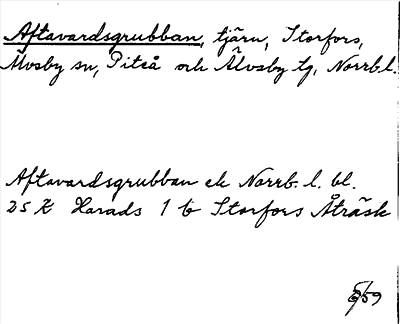 Aftavardsgrubban, tjärn, Storfors,
Älvsby sn, Piteå och Älvsby tg, Norrb. l.
Aftavardsgrubban ek Norrb. l. bl.
25 K Harads 1 b Storfors Åträsk
/59